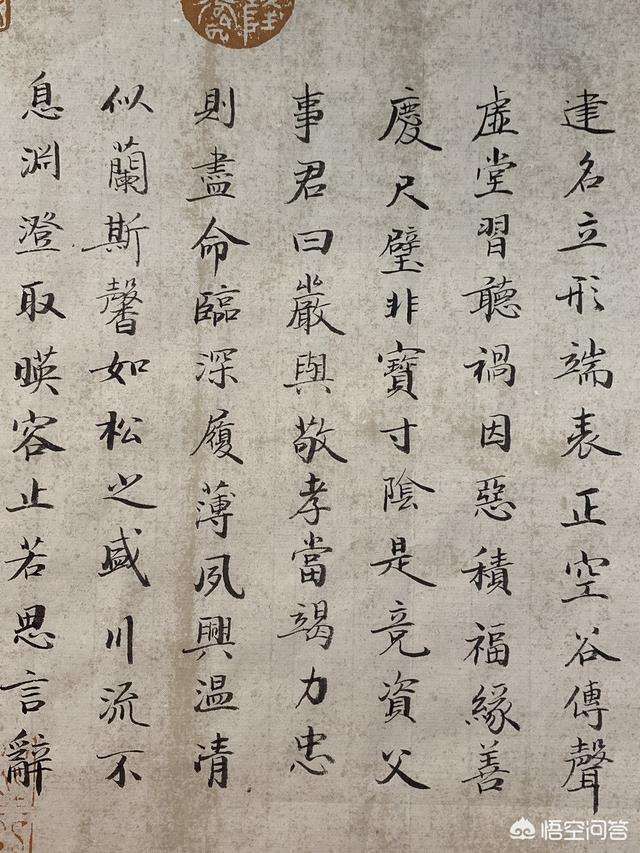 建名立形端表正空谷傳聲
虛堂習聽禍因惡積福緣善
慶尺璧非寶寸陰是競資父
事君曰嚴與敬孝當竭力忠
則盡命臨深履薄夙興温凊
似蘭斯馨如松之盛川流不
息淵澄取暎容止若思言辭
悟空问答